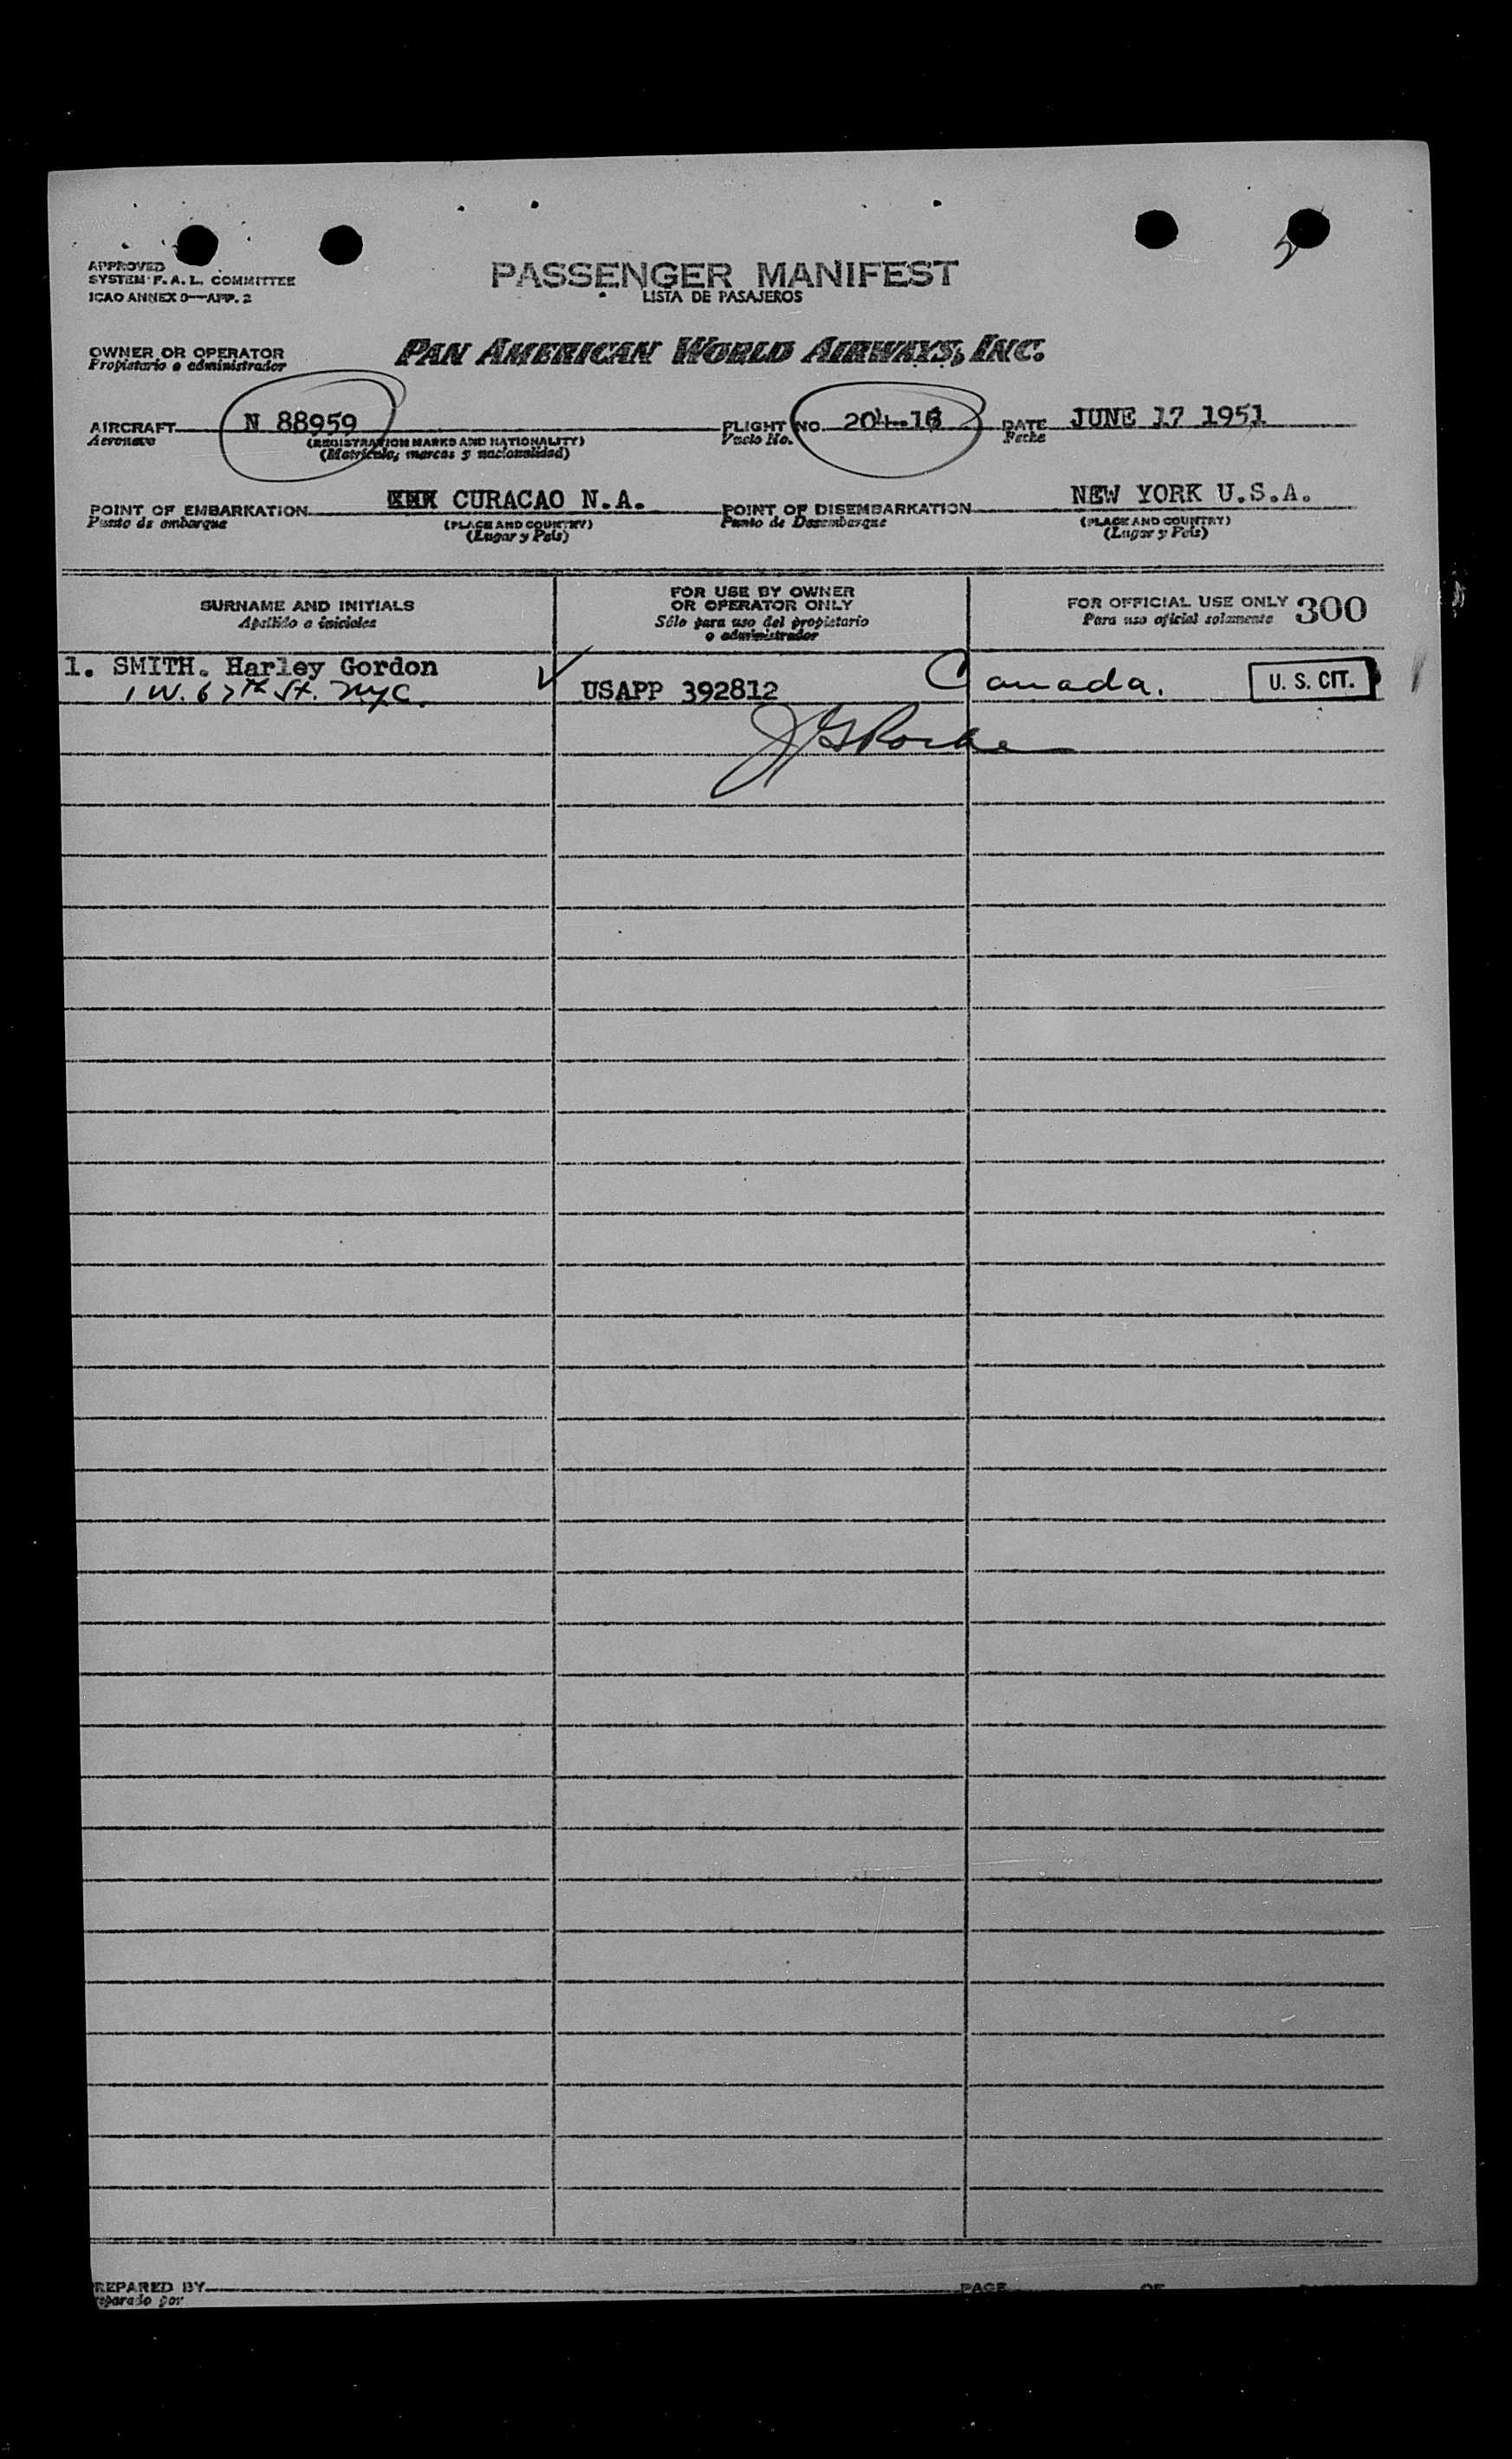 APPROVED
SYSTEM F. A. L. COMMITTEE
ICAO ANNEX 9—APP. 2
PASSENGER MANIFEST
LISTA DE PASAJEROS
OWNER OR OPERATOR
Propietario o administrador
PAN AMERICAN WORLD AIRWAYS, INC.
AIRCRAFT N 88959 FLIGHT NO. 204-16 DATE JUNE 17 1951
Aeronave (REGISTRATION MARKS AND NATIONALITY) Vuelo No. Fecha
(Matrícula, marcas y nacionalidad)
POINT OF EMBARKATION CURACAO N.A. POINT OF DISEMBARKATION NEW YORK U.S.A.
Punto de embarque (PLACE AND COUNTRY) Punto de Desembarque (PLACE AND COUNTRY)
(Lugar y País) (Lugar y País)
SURNAME AND INITIALS
Apellido e iniciales
FOR USE BY OWNER
OR OPERATOR ONLY
Sólo para uso del propietario
o administrador
FOR OFFICIAL USE ONLY 300
Para uso oficial solamente
1. SMITH. Harley Gordon
1 W. 67th St. NYC.
USAPP 392812
Canada. U. S. CIT.
PREPARED BY PAGE OF